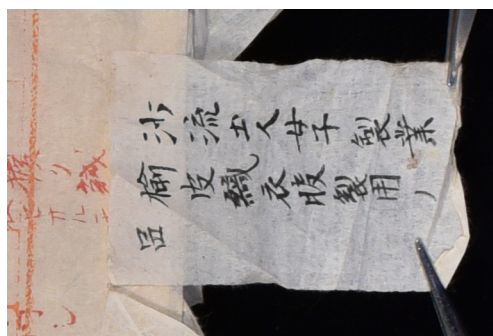 沙流土人女子製業
楡皮織衣服製用ノ
品